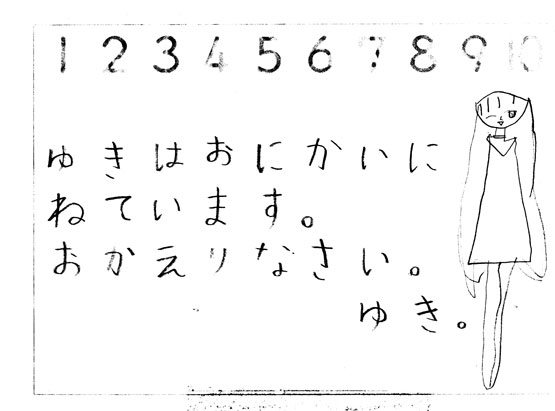 1 2 3 4 5 6 7 8 9 10
ゆきはおにかいに
ねています。
おかえりなさい。
ゆき。